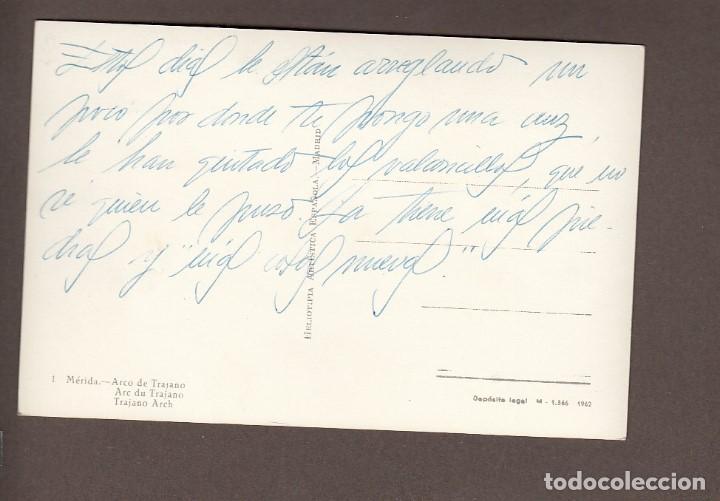 Estos días le están arreglando un
poco por donde te pongo una cruz,
le han quitado los balconcillos, que no
sé quien le puso. Ya tiene más pie-
dras y "más cosas nuevas."
HELIOTIPIA ARTÍSTICA ESPAÑOLA.—MADRID
1 Mérida.—Arco de Trajano
Arc du Trajano
Trajano Arch
Depósito legal M - 1.566 1962
todocoleccion